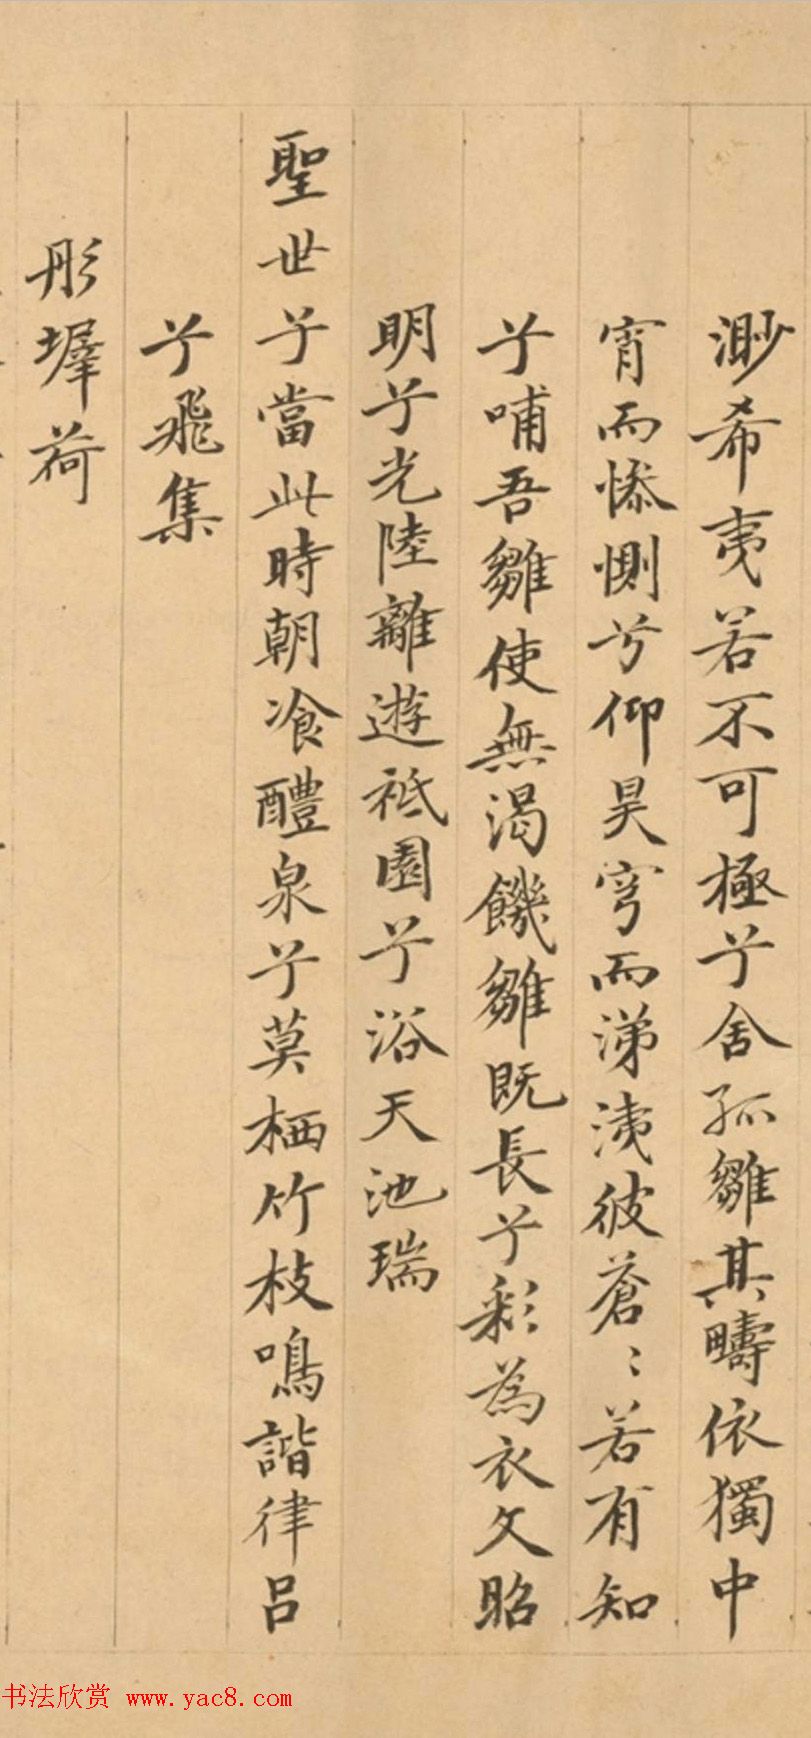 渺希夷若不可極兮舍孤雛其疇依獨中
宵而慘惻兮仰昊穹而涕洟彼蒼〻若有知
兮哺吾雛使無渴饑雛既長兮彩為衣文昭
明兮光陸離遊祗園兮浴天池瑞
聖世兮當此時朝飡醴泉兮莫栖竹枝鳴諧律呂
兮飛集
彤墀荷
书法欣赏 www.yac8.com